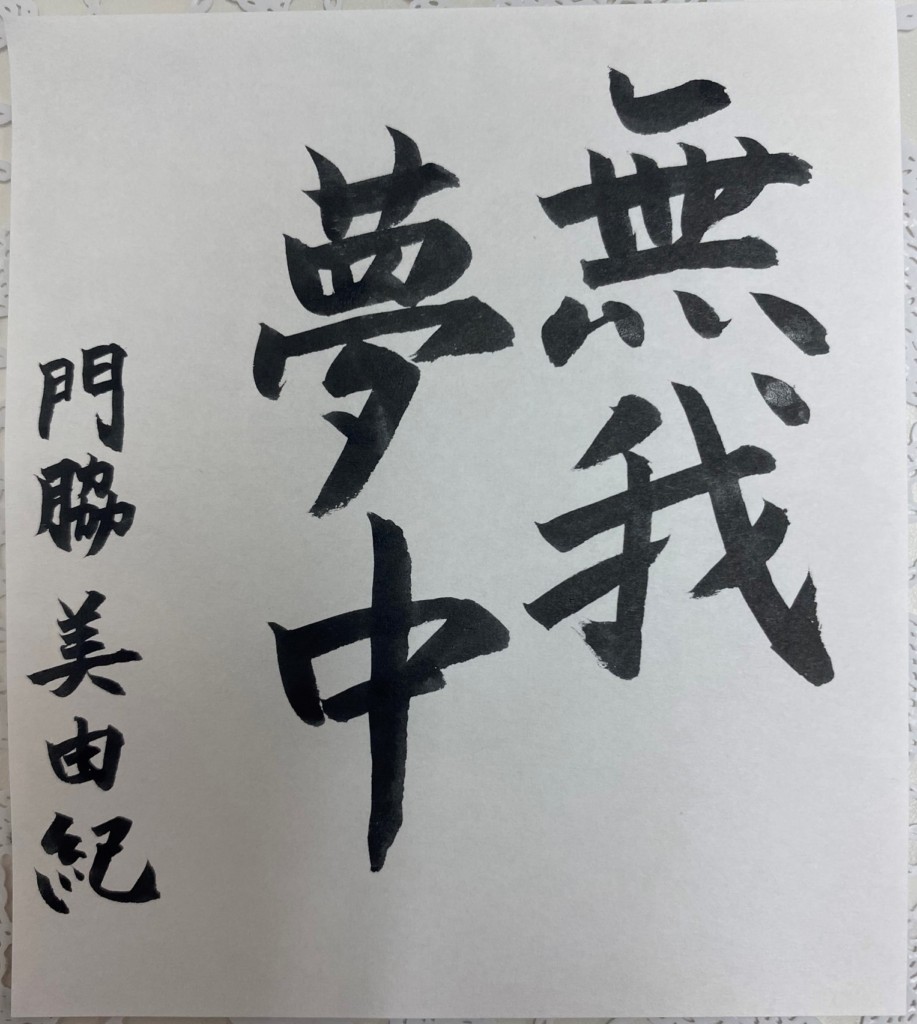 無我
夢中
門脇美由紀